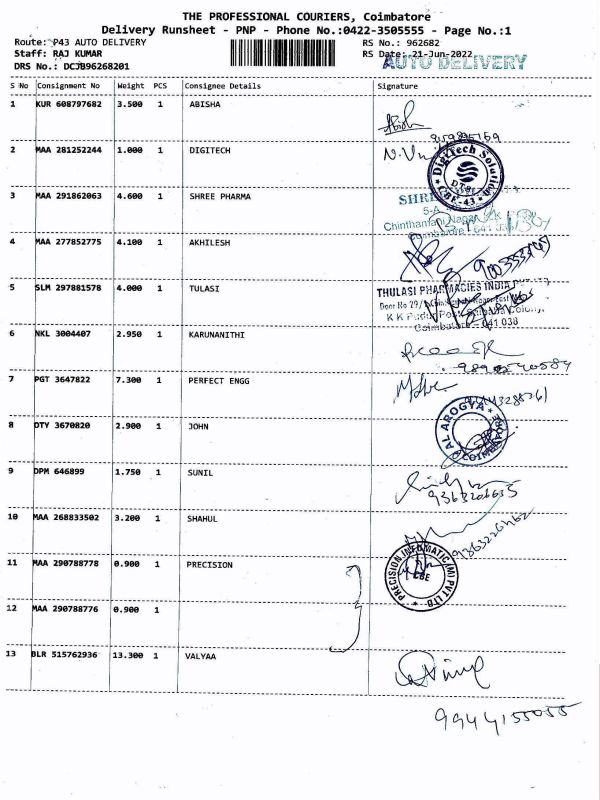 THE PROFESSIONAL COURIERS, Coimbatore
Delivery Runsheet - PNP - Phone No.:0422-3505555 - Page No.:1
Route: P43 AUTO DELIVERY RS No.: 962682
Staff: RAJ KUMAR RS Date: 21-Jun-2022
DRS No.: DCJB96268201 AUTO DELIVERY
S No Consignment No Weight PCS Consignee Details Signature
1 KUR 608797682 3.500 1 ABISHA
2 MAA 281252244 1.000 1 DIGITECH
DigiTech Solution
CBE-43
3 MAA 291862063 4.600 1 SHREE PHARMA
5-A
Chinthamani Nagar
Coimbatore - 641
4 MAA 277852775 4.100 1 AKHILESH
5 SLM 297881578 4.000 1 TULASI
THULASI PHARMACIES INDIA
Door No 29/
Coimbatore - 641 038
6 NKL 3004407 2.950 1 KARUNANITHI
7 PGT 3647822 7.300 1 PERFECT ENGG
8 DTY 3670820 2.900 1 JOHN
AL AROGYA
COIMBATORE
9 DPM 646899 1.750 1 SUNIL
10 MAA 268833502 3.200 1 SHAHUL
11 MAA 290788778 0.900 1 PRECISION
PRECISION INFOMATIC (M) PVT LTD
CBE
12 MAA 290788776 0.900 1
13 BLR 515762936 13.300 1 VALYAA
9944155055